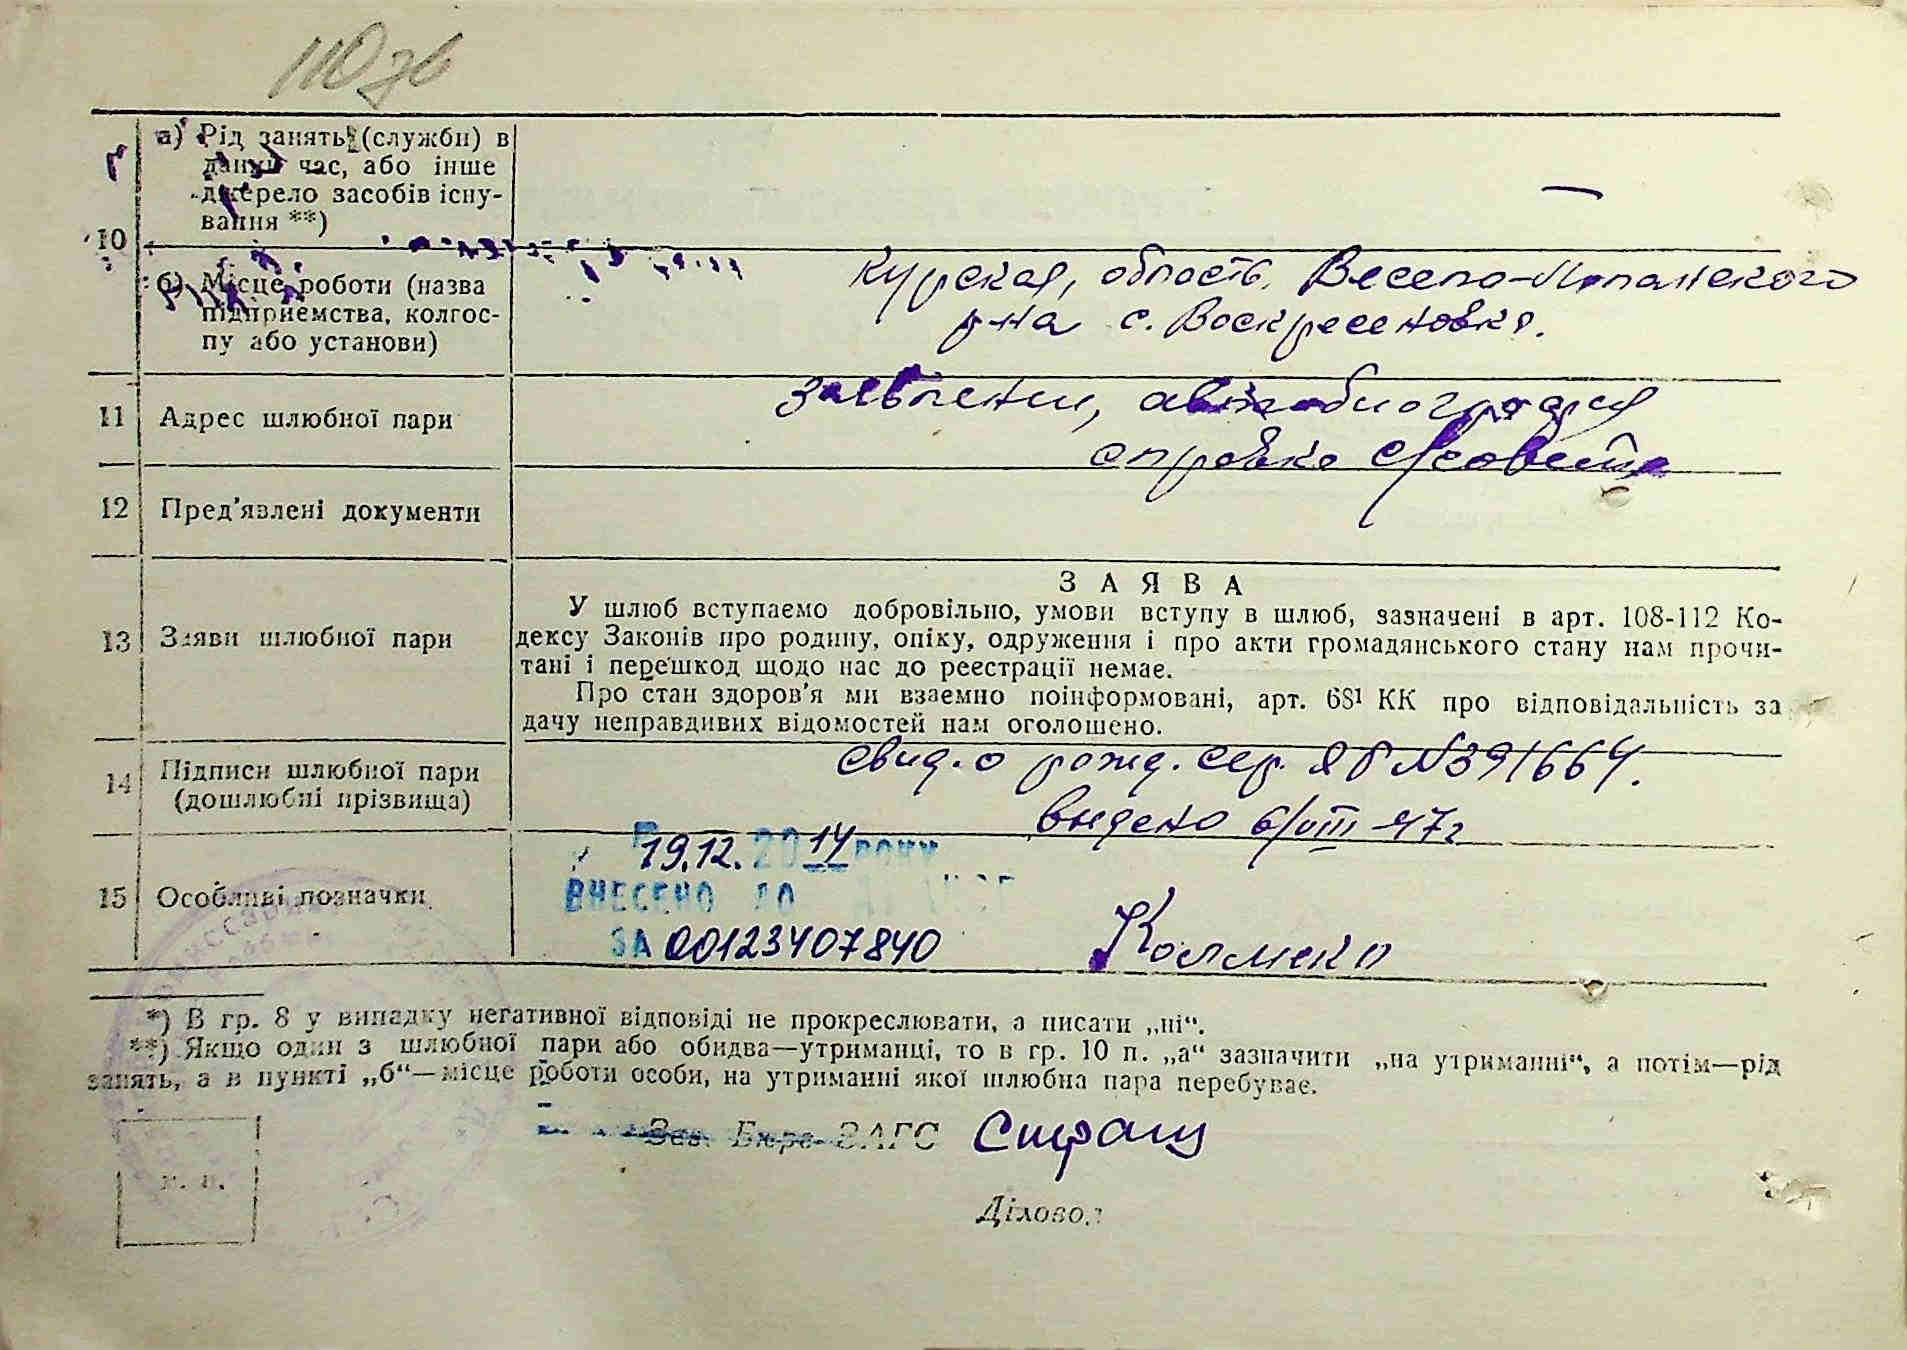 10 а) Рід занять (службн) в
даний час, або інше
джерело засобів існу-
вання **)
б) Місце роботи (назва
підприємства, колгос-
пу або установи)
Курская, область. Весело-Лопанского
р-на с. Воскресеновка.
11 Адрес шлюбної пари
заявлении, автобиография
справка с/совета
12 Пред'явлені документи
13 Заяви шлюбної пари
ЗАЯВА
У шлюб вступаємо добровільно, умови вступу в шлюб, зазначені в арт. 108-112 Ко-
дексу Законів про родину, опіку, одруження і про акти громадянського стану нам прочи-
тані і перешкод щодо нас до реєстрації немає.
Про стан здоров'я ми взаємно поінформовані, арт. 68¹ КК про відповідальність за
дачу неправдивих відомостей нам оголошено.
14 Підписи шлюбної пари
(дошлюбні прізвища)
Свид. о рожд. сер. ЯБ №391664.
выдено 6/VIII-47г
15 Особливі позначки
19.12. 2014 року
ВНЕСЕНО ДО
ЗА 00123407840
*) В гр. 8 у випадку негативної відповіді не прокреслювати, а писати „ні“.
**) Якщо один з шлюбної пари або обидва—утриманці, то в гр. 10 п. „а“ зазначити „на утриманні“, а потім—рід
занять, а в пункті „б“—місце роботи особи, на утриманні якої шлюбна пара перебуває.
Зав. Бюро ЗАГС
М. П.
Діловод